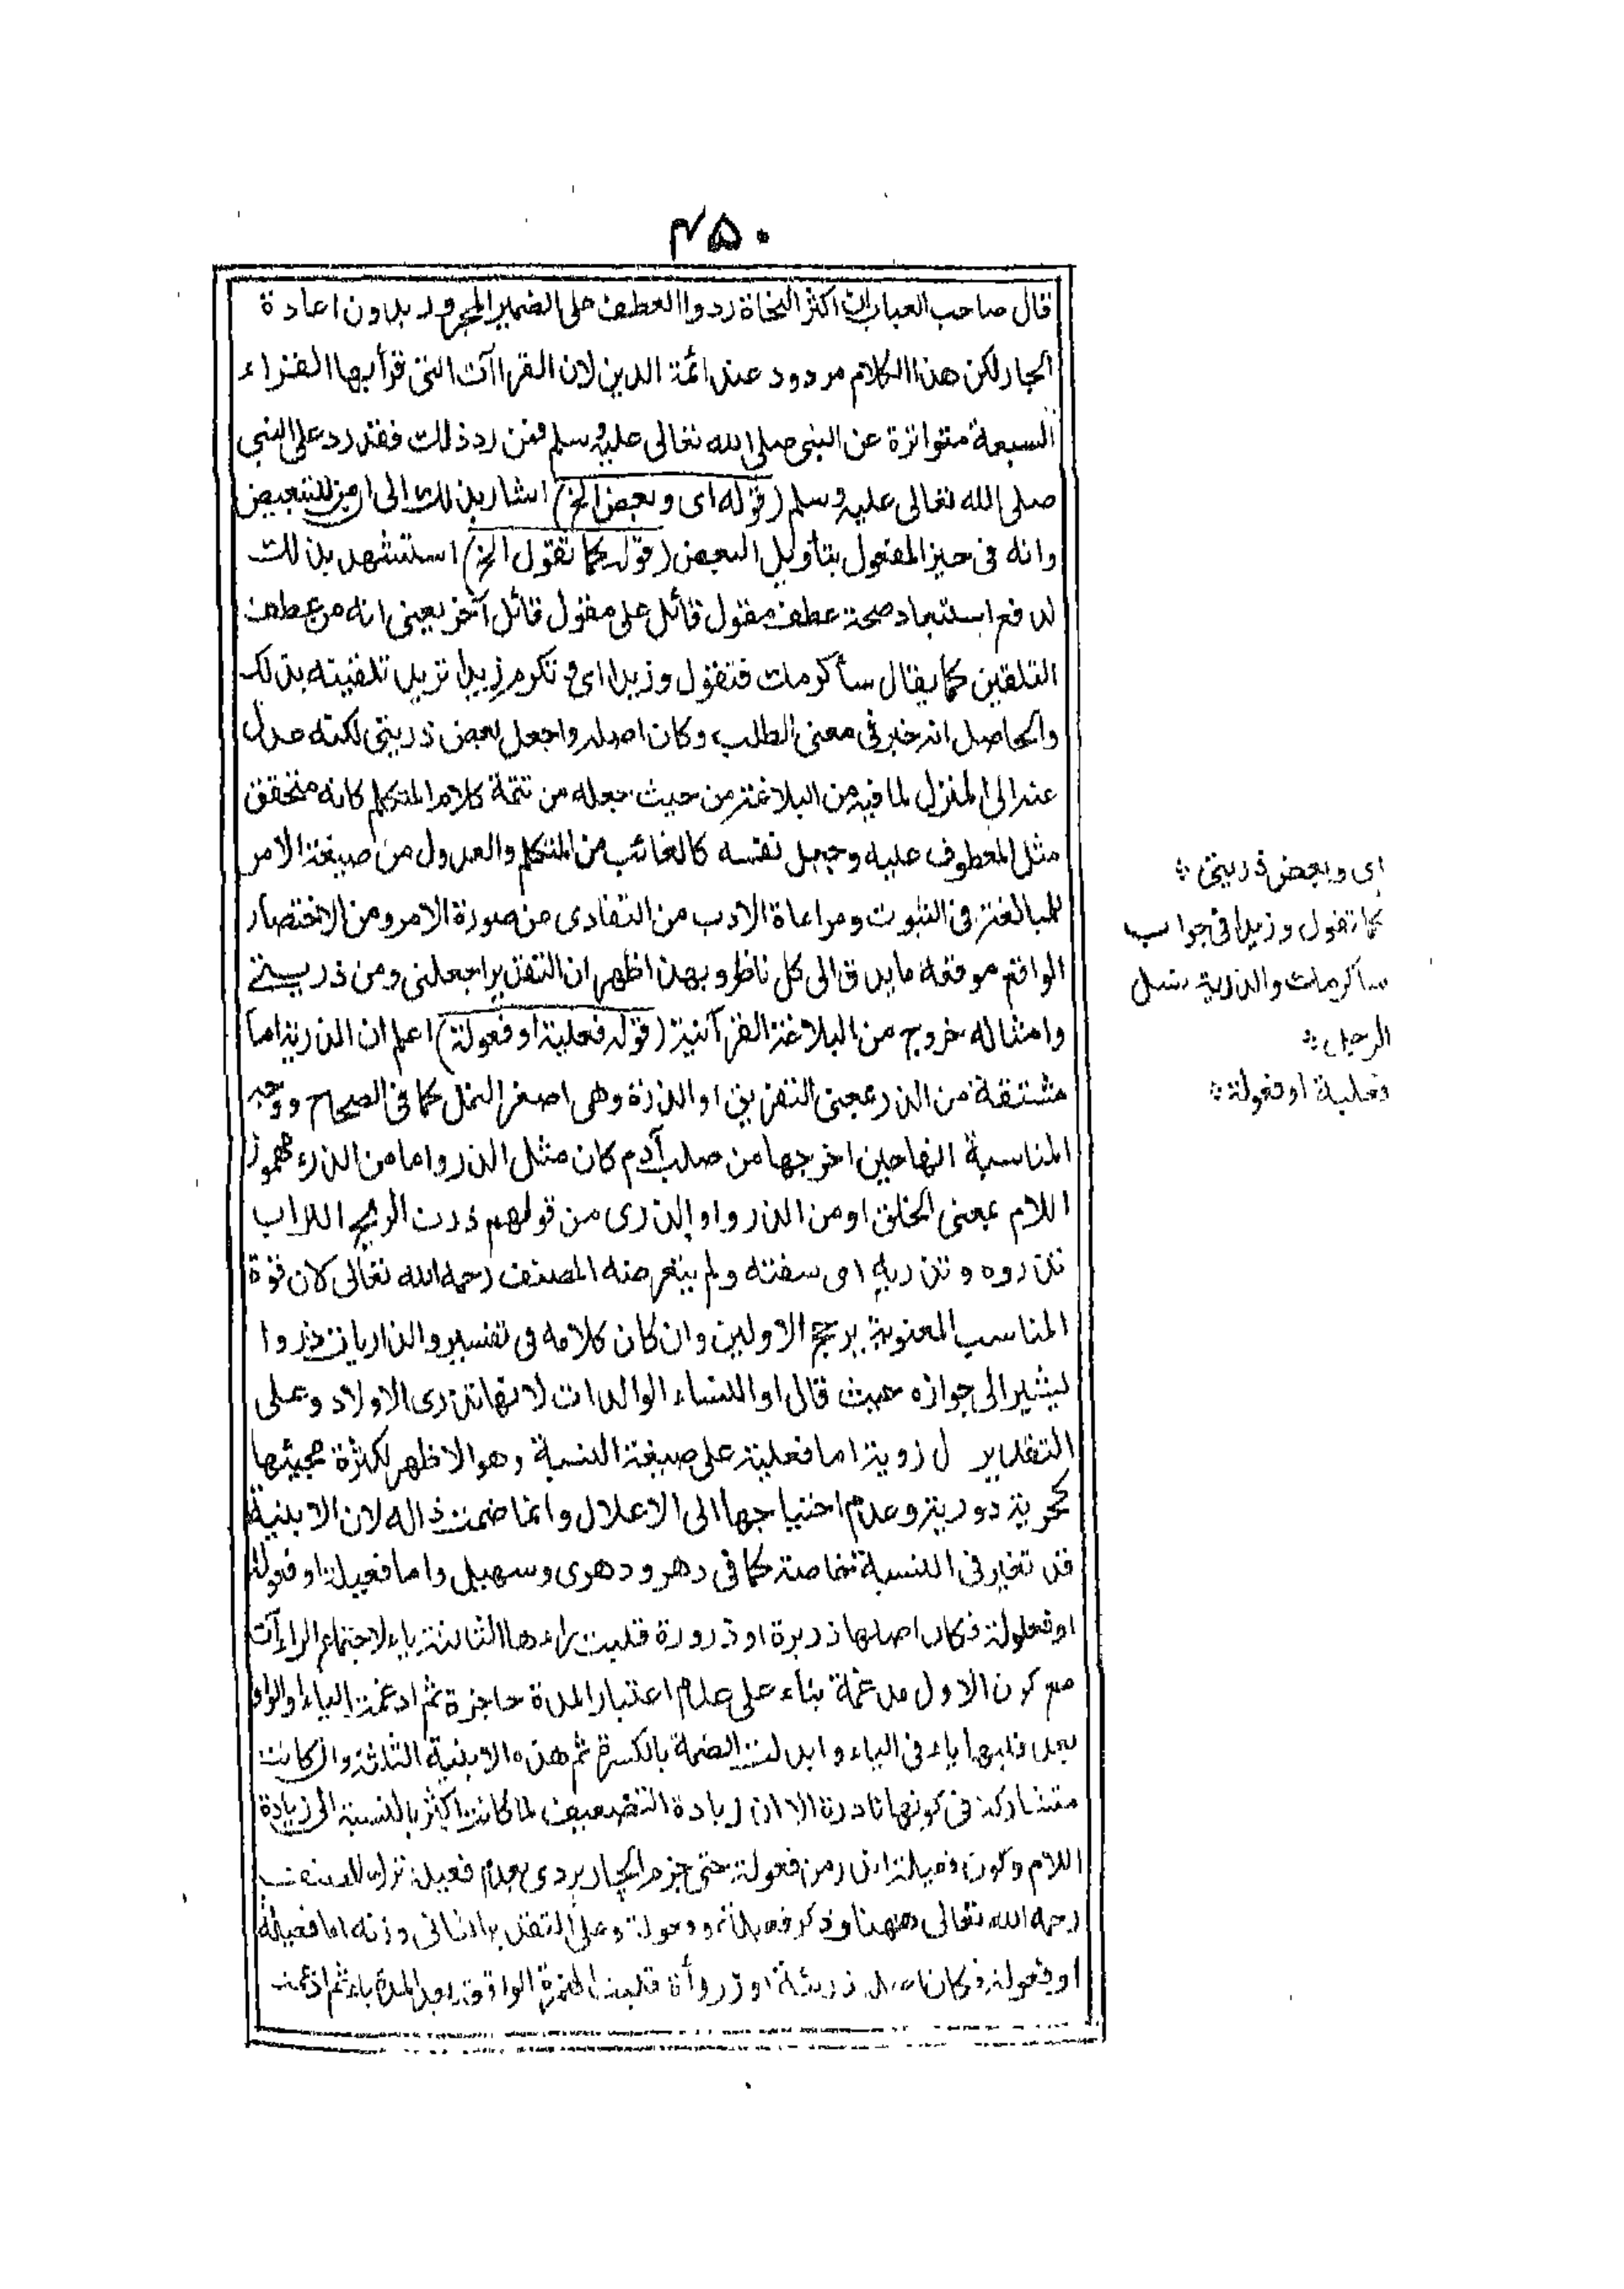 ۴۵۰
قال صاحب العباب ان اكثر النحاة ردوا العطف على الضمير المجرور بدون اعادة
الجار لكن هذا الكلام مردود عند ائمة الدين لان القراآت التى قرأ بها القراء
السبعة متواترة عن النبى صلى الله تعالى عليه وسلم فمن رد ذلك فقد رد على النبي
صلى الله تعالى عليه وسلم (قوله اى وبعض الخ) اشار بذلك الى ان من للتبعيض
وانه فى حيز المفعول بتأويل البعض (قوله كما تقول الخ) استشهد بذلك
لدفع استبعاد صحة عطف مقول قائل على مقول قائل آخر يعنى انه من عطف
التلقين كما يقال سأكرمك فتقول وزيدا اى وتكرم زيدا تريد تلقينه بذلك
والحاصل انه خبر فى معنى الطلب وكان اصله واجعل بعض ذريتى لكنه عدل
عنه الى المنزل لما فيه من البلاغة من حيث جعله من تتمة كلام المتكلم كانه متحقق
مثل المعطوف عليه وجعل نفسه كالغائب من المتكلم والعدول من صيغة الامر
للمبالغة فى الثبوت ومراعاة الادب من التفادى من صورة الامر ومن الاختصار
الواقع موقعه ما يدق الى كل ناظر وبهذا ظهر ان التقدير اجعلنى ومن ذريتے
وامثاله خروج من البلاغة القرآنية (قوله فعلية او فعولة) اعلم ان الذرية اما
مشتقة من الذر بمعنى التفريق او الذرة وهى اصغر النمل كما فى الصحاح ووجه
المناسبة انها حين اخرجها من صلب آدم كان مثل الذر واما من الذرء مهموز
اللام بمعنى الخلق او من الذرو او الذرى من قولهم ذرت الريح التراب
تذروه وتذريه اى سفته ولم يتعرضه المصنف رحمه الله تعالى لان قوة
المناسب المعنوية يرجح الاولين وان كان كلامه فى تفسير والذاريات ذروا
يشير الى جوازه حيث قال او النساء الوالدات لانها تذرى الاولاد وعلى
التقدير ل زوية اما فعلية على صيغة النسبة وهو الاظهر لكثرة مجيئها
كحرية دورية وعدم احتياجها الى الاعلال وانما ضمت ذاله لان الابنية
قد تغير فى النسبة خاصة كما فى دهر ودهرى وسهيل واما فعيلة او فعولة
او فعلولة فكان اصلها ذريرة او ذرورة قلبت راءها الثالثة ياء لاجتماع الراآت
مع كون الاول مدغمة بناء على عدم اعتبار المدة حاجزة ثم ادغمت الياء او الواو
بعد قلبها ياء فى الياء وابدلت الضمة بالكسرة ثم هذه الابنية الثلاثة وان كانت
متشاركة فى كونها نادرة الا ان زيادة التضعيف لما كانت اكثر بالنسبة الى زيادة
اللام وكون فعيلة اندر من فعولة حتى جزم الجاربردى بعدم فعيلة ترك المصنف
رحمه الله تعالى ههنا وذكر فعيلة وفعولة وعلى التقدير الثانى وزنه اما فعيلة
او فعولة فكان ذريئة او ذروأة قلبت الهمزة الواقعة بعد المدة ياء ثم ادغمت
اى وبعض ذريتى ؞
كما تقول وزيدا فى جواب
سأكرمك والذرية نسل
الرجل ؞
فعلية او فعولة ؞